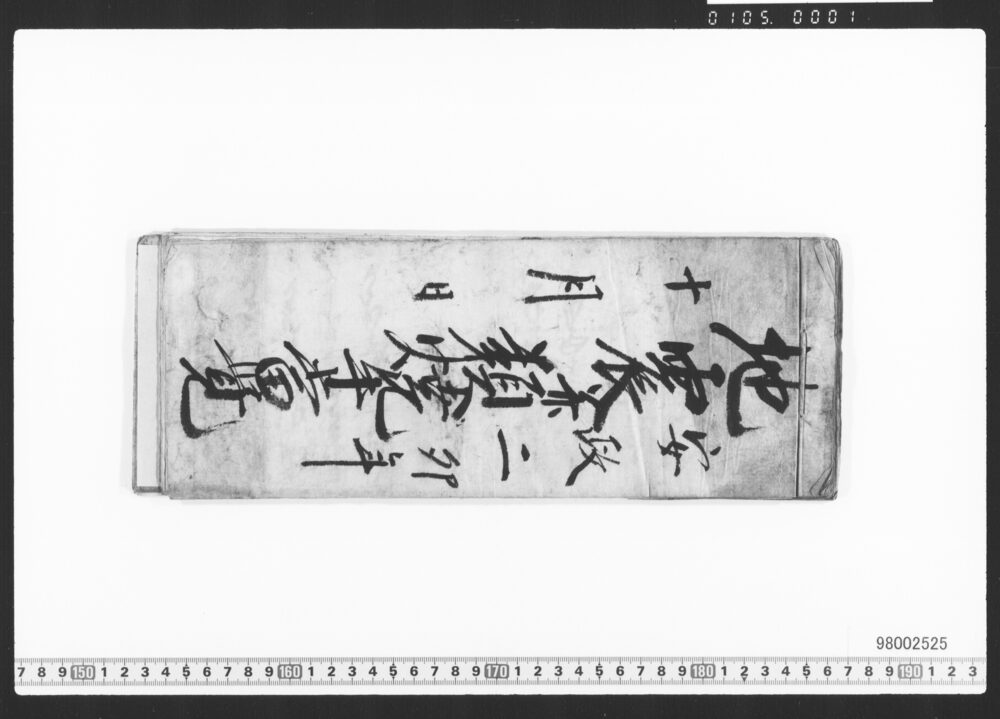 安政二卯年
地震類焼年番覚
十月日
0105.0001
98002525
7 8 9 150 1 2 3 4 5 6 7 8 9 160 1 2 3 4 5 6 7 8 9 170 1 2 3 4 5 6 7 8 9 180 1 2 3 4 5 6 7 8 9 190 1 2 3